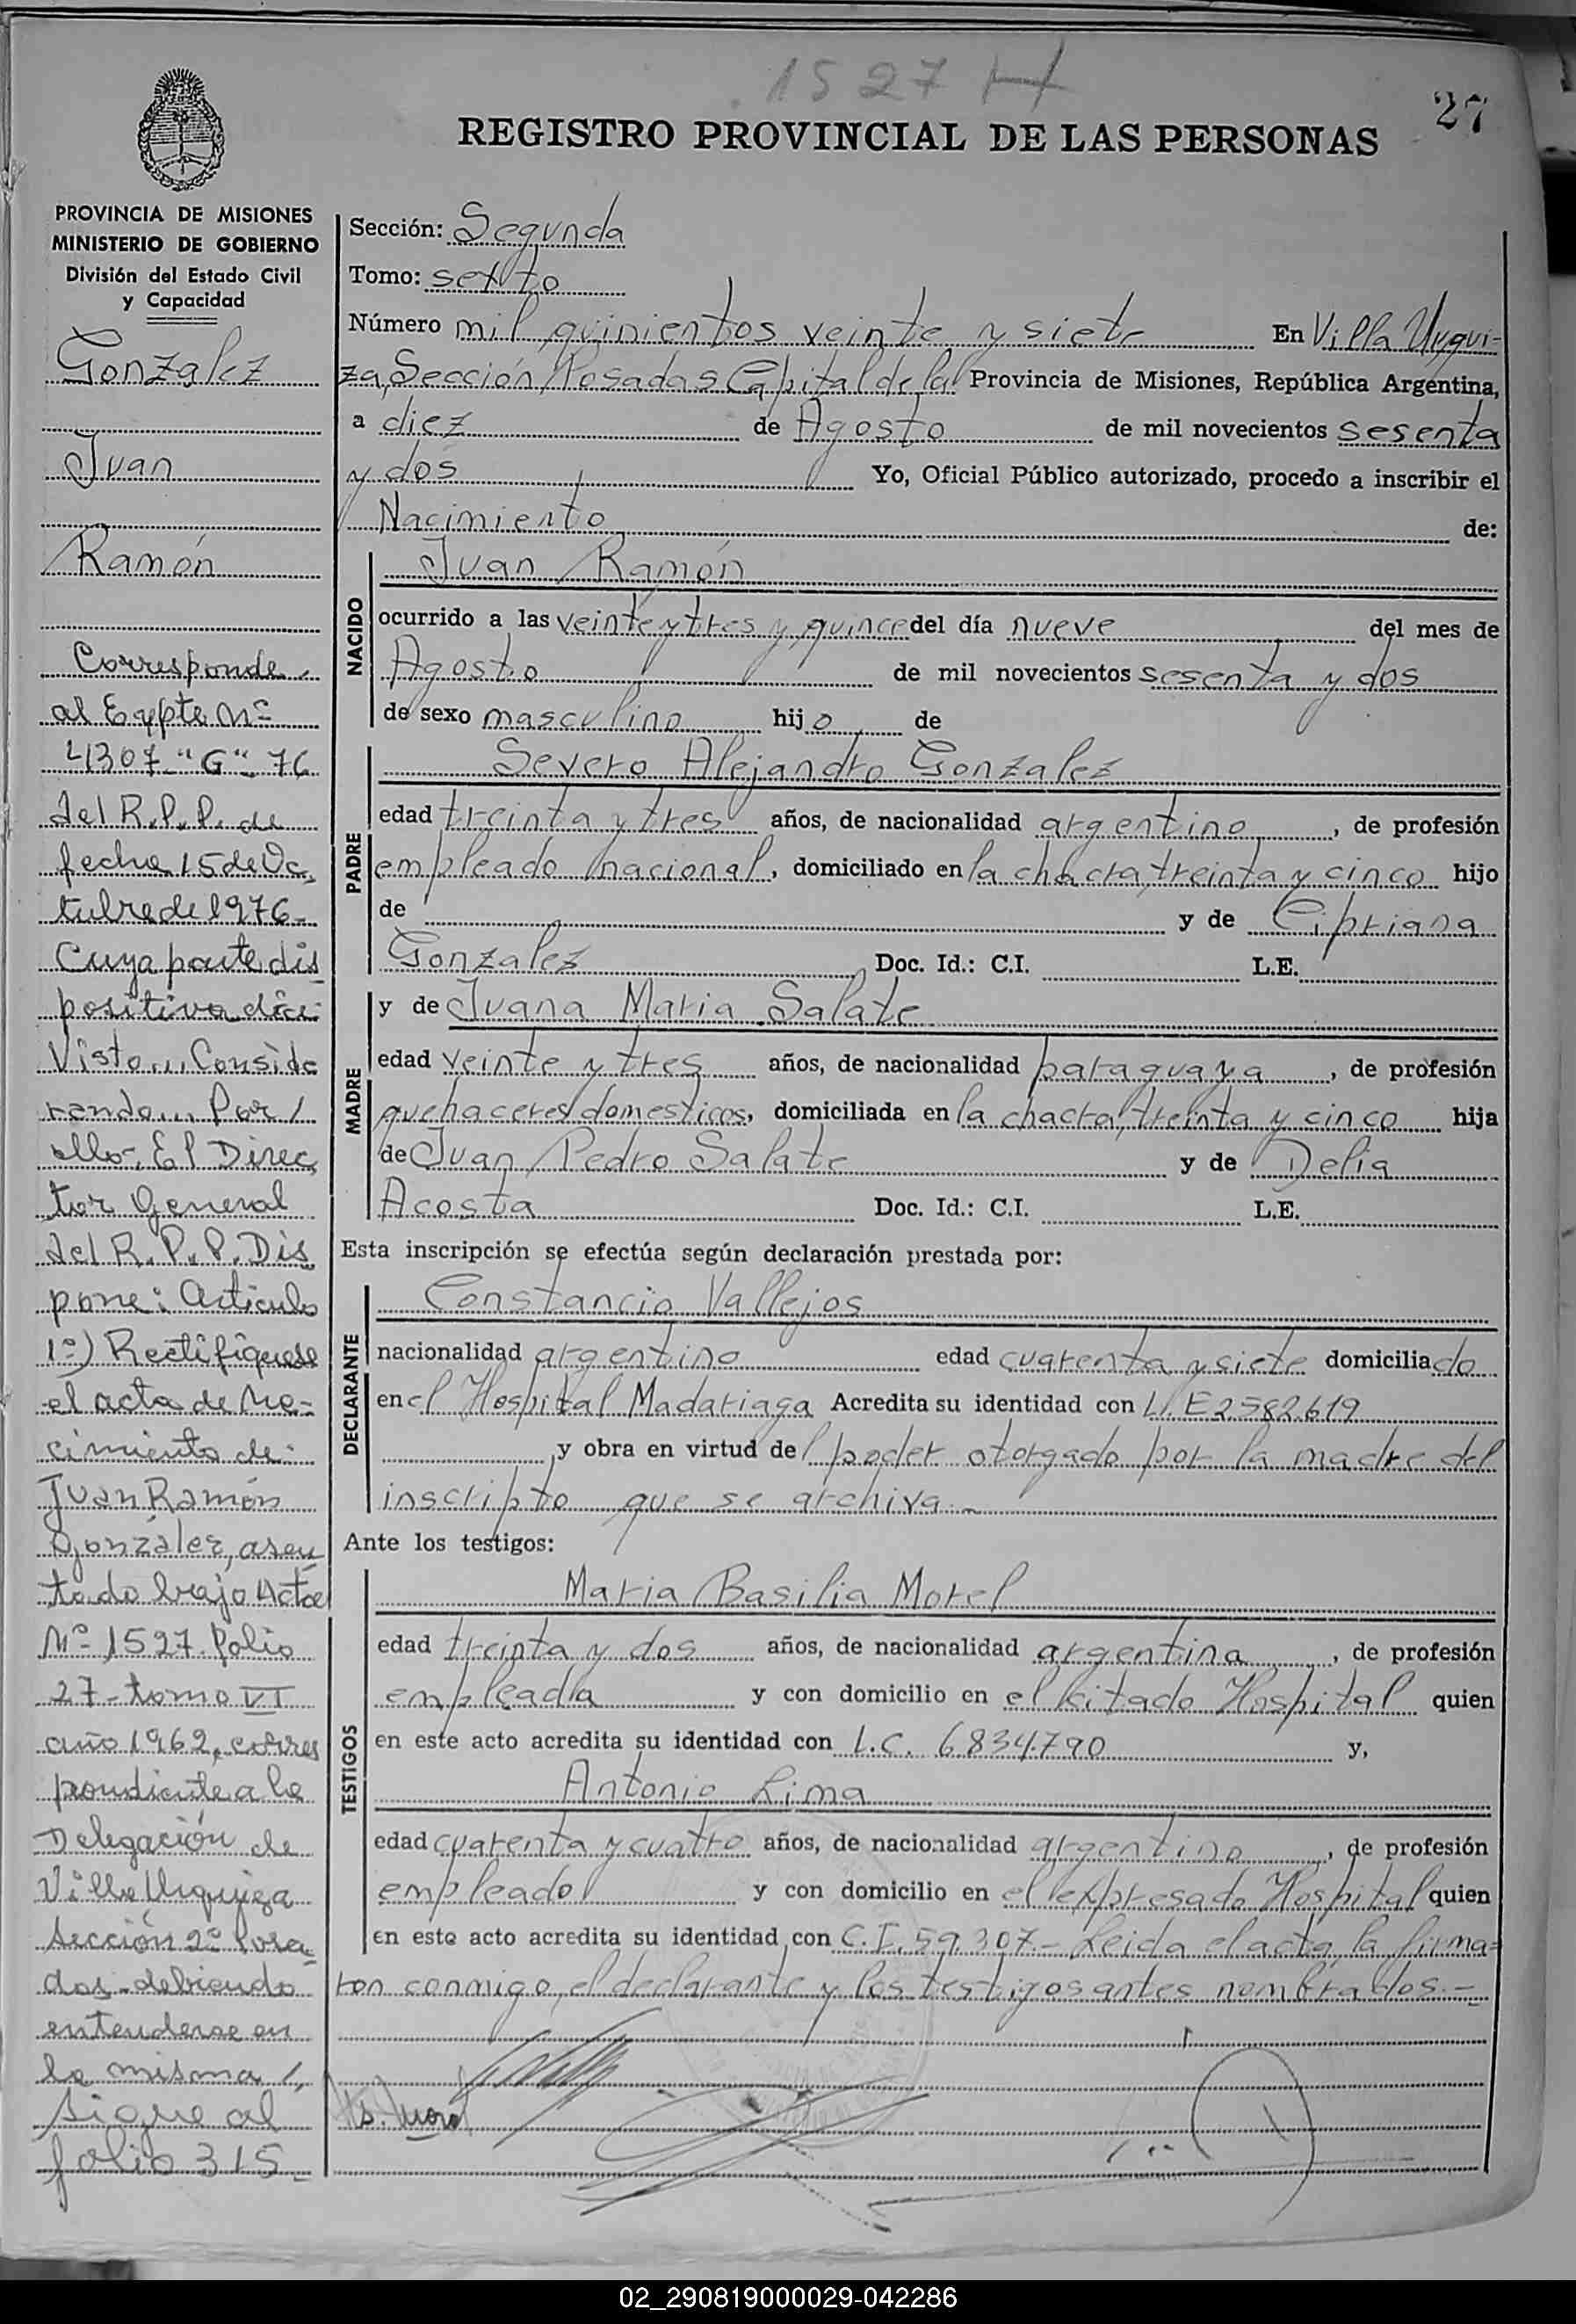 1527 H
27
REGISTRO PROVINCIAL DE LAS PERSONAS
PROVINCIA DE MISIONES
MINISTERIO DE GOBIERNO
División del Estado Civil
y Capacidad
Gonzalez
Juan
Ramón
Corresponde
al Expte Nº
4307-"G"-76
del R.P.P. de
fecha 15 de Oc,
tubre de 1976-
Cuya parte dis
positiva dice:
Visto... Conside
rando... Por /
ello-, El Direc,
tor General
del R.P.P. Dis
pone: Articulo
1º) Rectifiquese
el acta de Na-
cimiento de:
Juan Ramón
González, asen
tado bajo Acta
Nº 1527. folio
27- tomo VI
año 1962, corres
pondiente a la
Delegación de
Villa Urquiza
Sección 2º Posa-
das- debiendo
entenderse en
la misma /,
Sigue al
folio 315-
Sección: Segunda
Tomo: sexto
Número mil quinientos veinte y siete En Villa Urqui-
za, Sección Posadas Capital de la Provincia de Misiones, República Argentina,
a diez de Agosto de mil novecientos sesenta
y dos Yo, Oficial Público autorizado, procedo a inscribir el
Nacimiento de:
NACIDO
Juan Ramón
ocurrido a las veinte y tres y quince del día nueve del mes de
Agosto de mil novecientos sesenta y dos
de sexo masculino hijo de
PADRE
Severo Alejandro Gonzalez
edad treinta y tres años, de nacionalidad argentino, de profesión
empleado nacional, domiciliado en la chacra, treinta y cinco hijo
de y de Cipriana
Gonzalez Doc. Id.: C.I. L.E.
MADRE
y de Juana Maria Salate
edad veinte y tres años, de nacionalidad paraguaya, de profesión
quehaceres domesticos, domiciliada en la chacra, treinta y cinco hija
de Juan Pedro Salate y de Delia
Acosta Doc. Id.: C.I. L.E.
Esta inscripción se efectúa según declaración prestada por:
DECLARANTE
Constancio Vallejos
nacionalidad argentino edad cuarenta y siete domiciliado
en el Hospital Madariaga Acredita su identidad con L.E 2582619
y obra en virtud del poder otorgado por la madre del
inscripto que se archiva.-
Ante los testigos:
TESTIGOS
Maria Basilia Morel
edad treinta y dos años, de nacionalidad argentina, de profesión
empleada y con domicilio en el citado Hospital quien
en este acto acredita su identidad con L.C. 6.834.790 y,
Antonio Lima
edad cuarenta y cuatro años, de nacionalidad argentino, de profesión
empleado y con domicilio en el expresado Hospital quien
en este acto acredita su identidad con C.I. 59.307.- Leida el acta, la firma=
ron conmigo, el declarante y los testigos antes nombrados.-
B. Morel
02_290819000029-042286